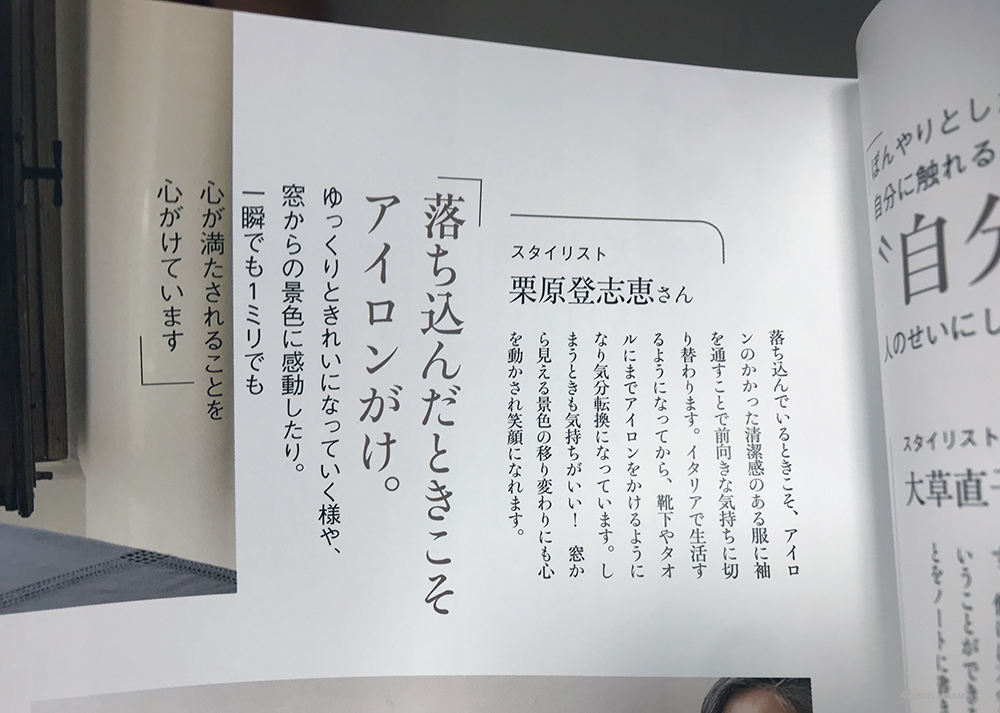 ぼんやりとし
自分に触れる
〝自分
人のせいにし
スタイリスト
大草直子
いうことができ
とをノートに書き
スタイリスト
栗原登志恵さん
落ち込んでいるときこそ、アイロ
ンのかかった清潔感のある服に袖
を通すことで前向きな気持ちに切
り替わります。イタリアで生活す
るようになってから、靴下やタオ
ルにまでアイロンをかけるように
なり気分転換になっています。し
まうときも気持ちがいい！　窓か
ら見える景色の移り変わりにも心
を動かされ笑顔になれます。
「落ち込んだときこそ
アイロンがけ。
ゆっくりときれいになっていく様や、
窓からの景色に感動したり。
一瞬でも1ミリでも
心が満たされることを
心がけています」